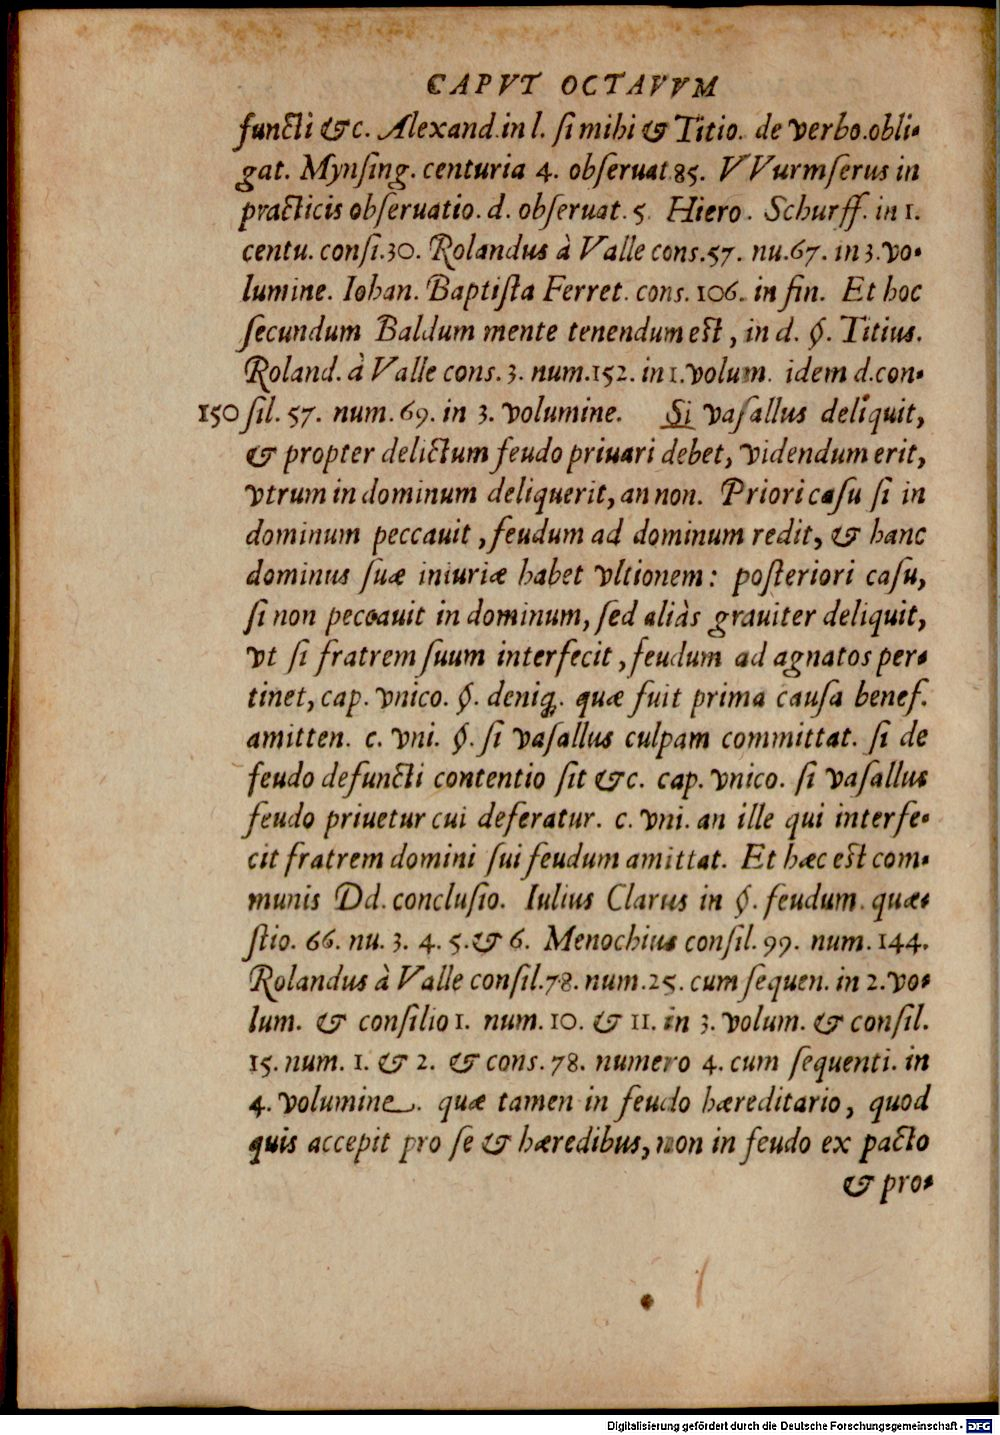 CAPVT OCTAVVM
functi &c. Alexand. in l. si mihi & Titio. de verbo. obli-
gat. Mynsing. centuria 4. obseruat. 85. VVurmserus in
practicis obseruatio. d. obseruat. 5. Hiero. Schurff. in 1.
centu. consi. 30. Rolandus à Valle cons. 57. nu. 67. in 3. vo-
lumine. Iohan. Baptista Ferret. cons. 106. in fin. Et hoc
secundum Baldum mente tenendum est, in d. §. Titius.
Roland. à Valle cons. 3. num. 152. in 1. volum. idem d. con-
150 sil. 57. num. 69. in 3. volumine. Si vasallus deliquit,
& propter delictum feudo priuari debet, videndum erit,
vtrum in dominum deliquerit, an non. Priori casu si in
dominum peccauit, feudum ad dominum redit, & hanc
dominus suæ iniuriæ habet vltionem: posteriori casu,
si non peccauit in dominum, sed aliàs grauiter deliquit,
vt si fratrem suum interfecit, feudum ad agnatos per-
tinet, cap. vnico. §. deniq;. quæ fuit prima causa benef.
amitten. c. vni. §. si vasallus culpam committat. si de
feudo defuncti contentio sit &c. cap. vnico. si vasallus
feudo priuetur cui deferatur. c. vni. an ille qui interfe-
cit fratrem domini sui feudum amittat. Et hæc est com-
munis Dd. conclusio. Iulius Clarus in §. feudum. quæ-
stio. 66. nu. 3. 4. 5. & 6. Menochius consil. 99. num. 144.
Rolandus à Valle consil. 78. num. 25. cum sequen. in 2. vo-
lum. & consilio 1. num. 10. & 11. in 3. volum. & consil.
15. num. 1. & 2. & cons. 78. numero 4. cum sequenti. in
4. volumine. quæ tamen in feudo hæreditario, quod
quis accepit pro se & hæredibus, non in feudo ex pacto
& pro-
Digitalisierung gefördert durch die Deutsche Forschungsgemeinschaft - DFG